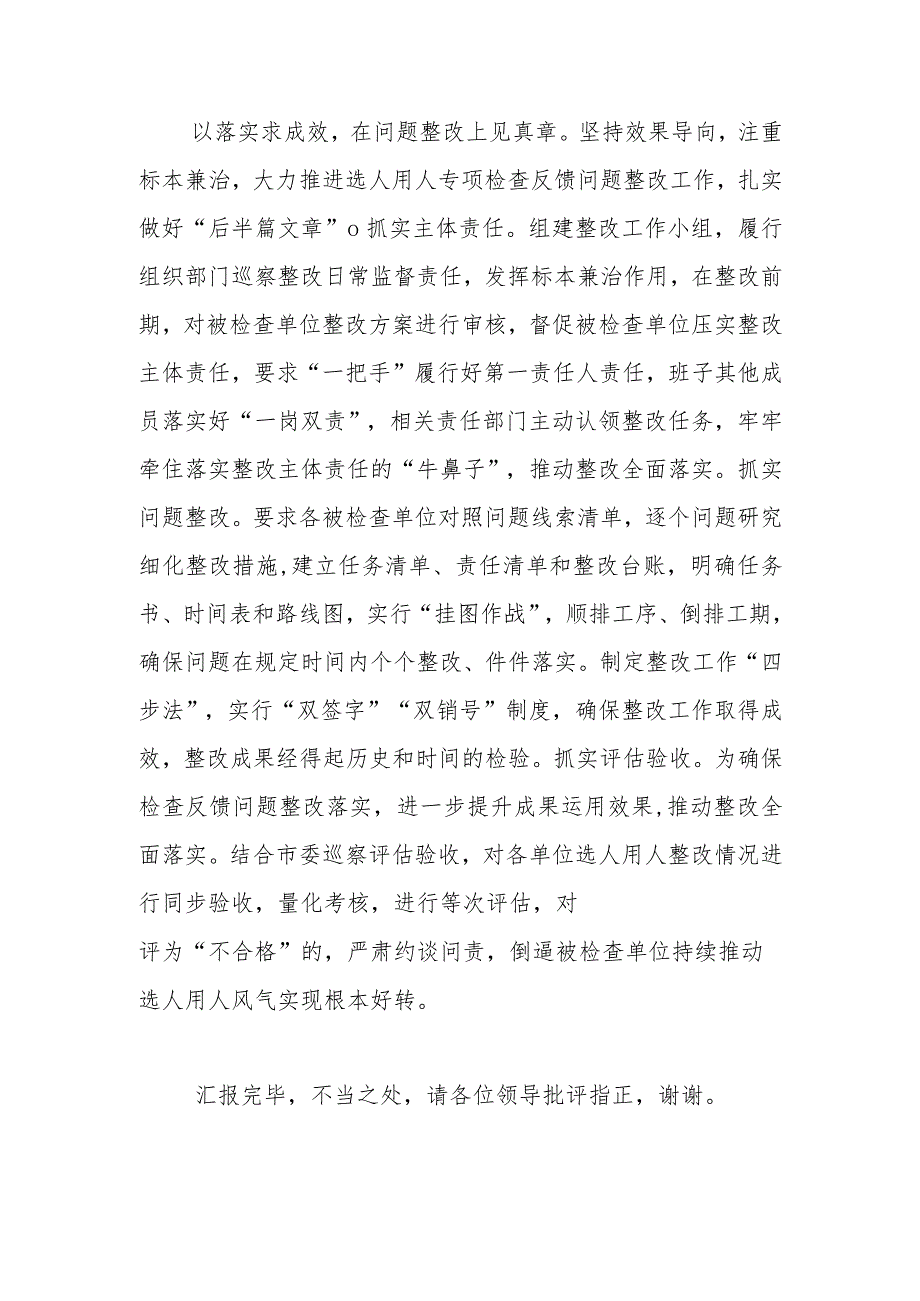 以落实求成效，在问题整改上见真章。坚持效果导向，注重
标本兼治，大力推进选人用人专项检查反馈问题整改工作，扎实
做好“后半篇文章”o抓实主体责任。组建整改工作小组，履行
组织部门巡察整改日常监督责任，发挥标本兼治作用，在整改前
期，对被检查单位整改方案进行审核，督促被检查单位压实整改
主体责任，要求“一把手”履行好第一责任人责任，班子其他成
员落实好“一岗双责”，相关责任部门主动认领整改任务，牢牢
牵住落实整改主体责任的“牛鼻子”，推动整改全面落实。抓实
问题整改。要求各被检查单位对照问题线索清单，逐个问题研究
细化整改措施,建立任务清单、责任清单和整改台账，明确任务
书、时间表和路线图，实行“挂图作战”，顺排工序、倒排工期，
确保问题在规定时间内个个整改、件件落实。制定整改工作“四
步法”，实行“双签字”“双销号”制度，确保整改工作取得成
效，整改成果经得起历史和时间的检验。抓实评估验收。为确保
检查反馈问题整改落实，进一步提升成果运用效果,推动整改全
面落实。结合市委巡察评估验收，对各单位选人用人整改情况进
行同步验收，量化考核，进行等次评估，对
评为“不合格”的，严肃约谈问责，倒逼被检查单位持续推动
选人用人风气实现根本好转。
汇报完毕，不当之处，请各位领导批评指正，谢谢。